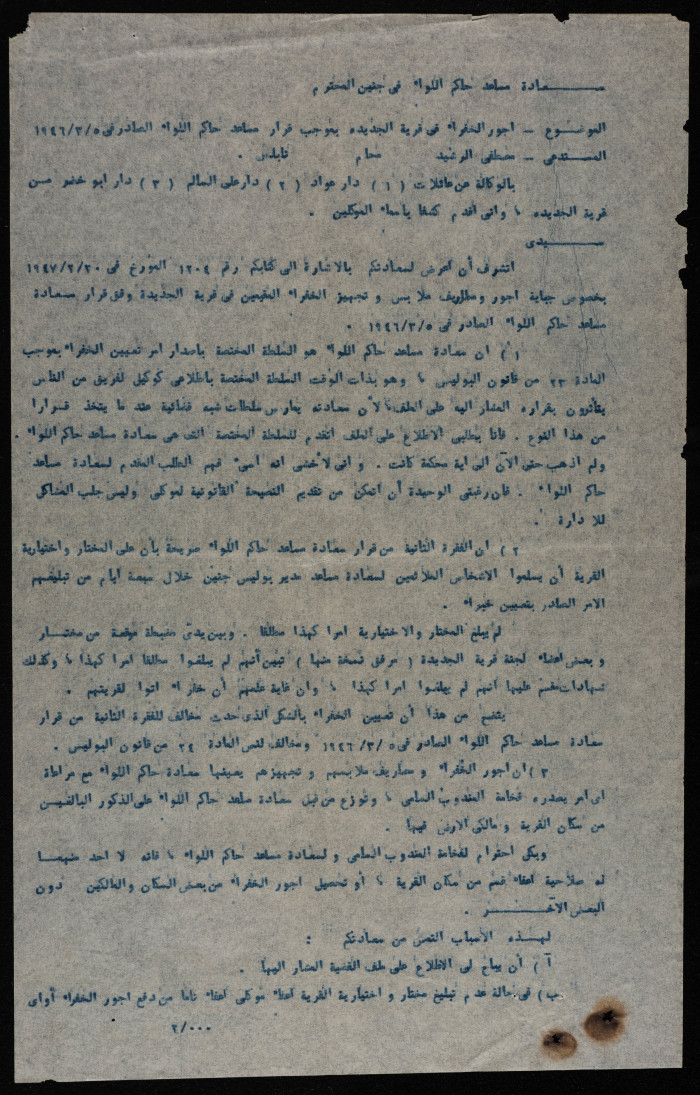 سعادة مساعد حاكم اللواء في جنين المحترم
الموضوع – اجور الخفراء في قرية الجديده بموجب قرار مساعد حاكم اللواء الصادر في ١٩٤٦/٣/٥
المستدعي – مصطفى الرشيد محام نابلس .
بالوكالة عن عائلات ( ١ ) دار عواد ( ٢ ) دار علي السالم ( ٣ ) دار ابو خضر من
قرية الجديده ، واني اقدم كشفا باسماء الموكلين .
سيدى
اتشرف أن اعرض لسعادتكم بالاشارة الى كتابكم رقم ١٢٠٤ المؤرخ في ١٩٤٧/٢/٢٠
بخصوص جباية اجور ومصاريف ملابس و تجهيز الخفراء المعينين في قرية الجديدة وفق قرار سعادة
مساعد حاكم اللواء الصادر في ١٩٤٦/٣/٥ .
١ ) ان سعادة مساعد حاكم اللواء هو السلطة المختصة باصدار امر تعيين الخفراء بموجب
المادة ٢٣ من قانون البوليس ، وهو بذات الوقت السلطة المختصة باطلاعي كوكيل لفريق من الناس
يتأثرون بقراره المشار اليه على الملف ، لأن سعادته يمارس سلطات شبه قضائية عند ما يتخذ قرارا
من هذا النوع . فانا بطلبي الاطلاع على الملف اتقدم للسلطة المختصة التي هي سعادة مساعد حاكم اللواء .
ولم اذهب حتى الآن الى اية محكمة كانت . واني لاخشى انه اسيء فهم الطلب المقدم لسعادة مساعد
حاكم اللواء . فان رغبتي الوحيدة أن اتمكن من تقديم النصيحة القانونية لموكلي وليس جلب المشاكل
للادارة .
٢ ) ان الفقرة الثانية من قرار سعادة مساعد حاكم اللواء صريحة بأن على المختار واختيارية
القرية أن يسلموا الاشخاص الملائمين لسعادة مساعد مدير بوليس جنين خلال سبعة ايام من تبليغهم
الامر الصادر بتعيين خفراء .
لم يبلغ المختار والاختيارية امرا كهذا مطلقا . وبين يدىّ مضبطة موقعة من مختار
وبعض اعضاء لجنة قرية الجديدة ( مرفق نسخة منها ) تبين أنهم لم يبلغوا مطلقا امرا كهذا ، وكذلك
شهادات مقسم عليها انهم لم يبلغوا امرا كهذا ، وان غاية علمهم أن خفراء اتوا لقريتهم .
يتضح من هذا أن تعيين الخفراء بالشكل الذى حدث مخالف للفقرة الثانية من قرار
سعادة مساعد حاكم اللواء الصادر في ١٩٤٦/٣/٥ ومخالف لنص المادة ٢٤ من قانون البوليس .
٣ ) ان اجور الخفراء ومصاريف ملابسهم و تجهيزهم يعينها سعادة حاكم اللواء مع مراعاة
اى امر يصدره فخامة المندوب السامي ، وتوزع من قبل سعادة مساعد حاكم اللواء على الذكور البالغين
من سكان القرية و مالكي الارض فيها .
وبكل احترام لفخامة المندوب السامي و لسعادة مساعد حاكم اللواء ، فانه لا احد منهما
له صلاحية اعفاء قسم من سكان القرية ، أو تحصيل اجور الخفراء من بعض السكان والمالكين دون
البعض الآخر .
لهذه الأسباب التمس من سعادتكم :
أ ) أن يباح لي الاطلاع على ملف القضية المشار اليها .
ب ) في حالة عدم تبليغ مختار و اختيارية القرية اعفاء موكلي اعفاء تاما من دفع اجور الخفراء أو اى
٢/٠٠٠